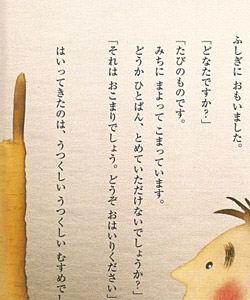 ふしぎに おもいました。
「どなたですか？」
「たびのものです。
みちに まよって こまっています。
どうか ひとばん、とめていただけないでしょうか？」
「それは おこまりでしょう。どうぞ おはいりください」
はいってきたのは、うつくしい うつくしい むすめでし